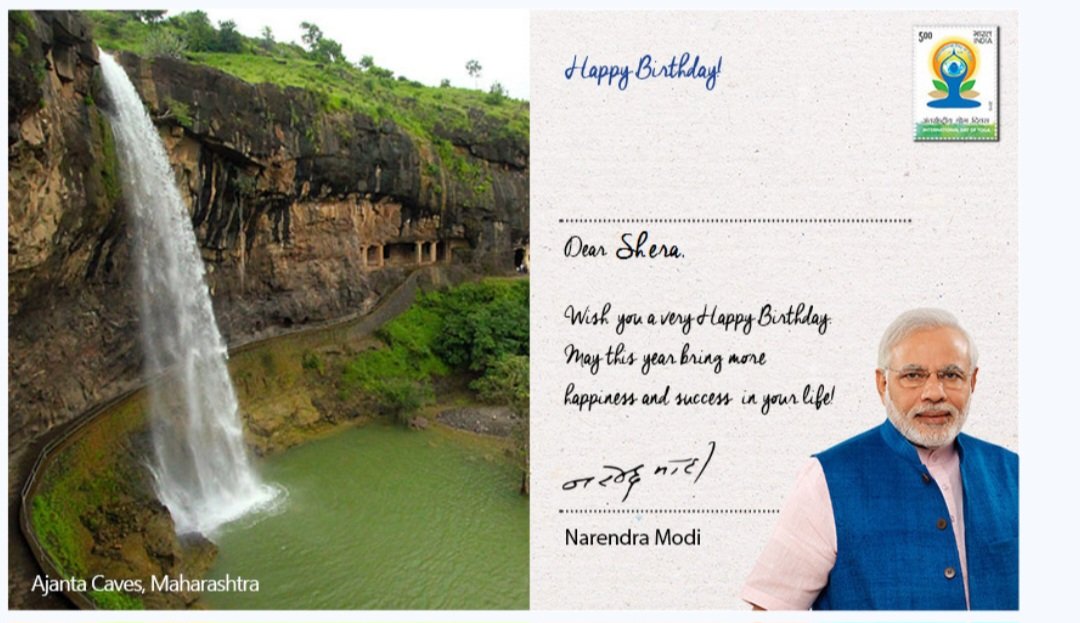 Happy Birthday!
5.00
भारत
INDIA
अंतर्राष्ट्रीय योग दिवस
INTERNATIONAL DAY OF YOGA
Dear Shera,
Wish you a very Happy Birthday.
May this year bring more
happiness and success in your life!
नरेन्द्र मोदी
Narendra Modi
Ajanta Caves, Maharashtra